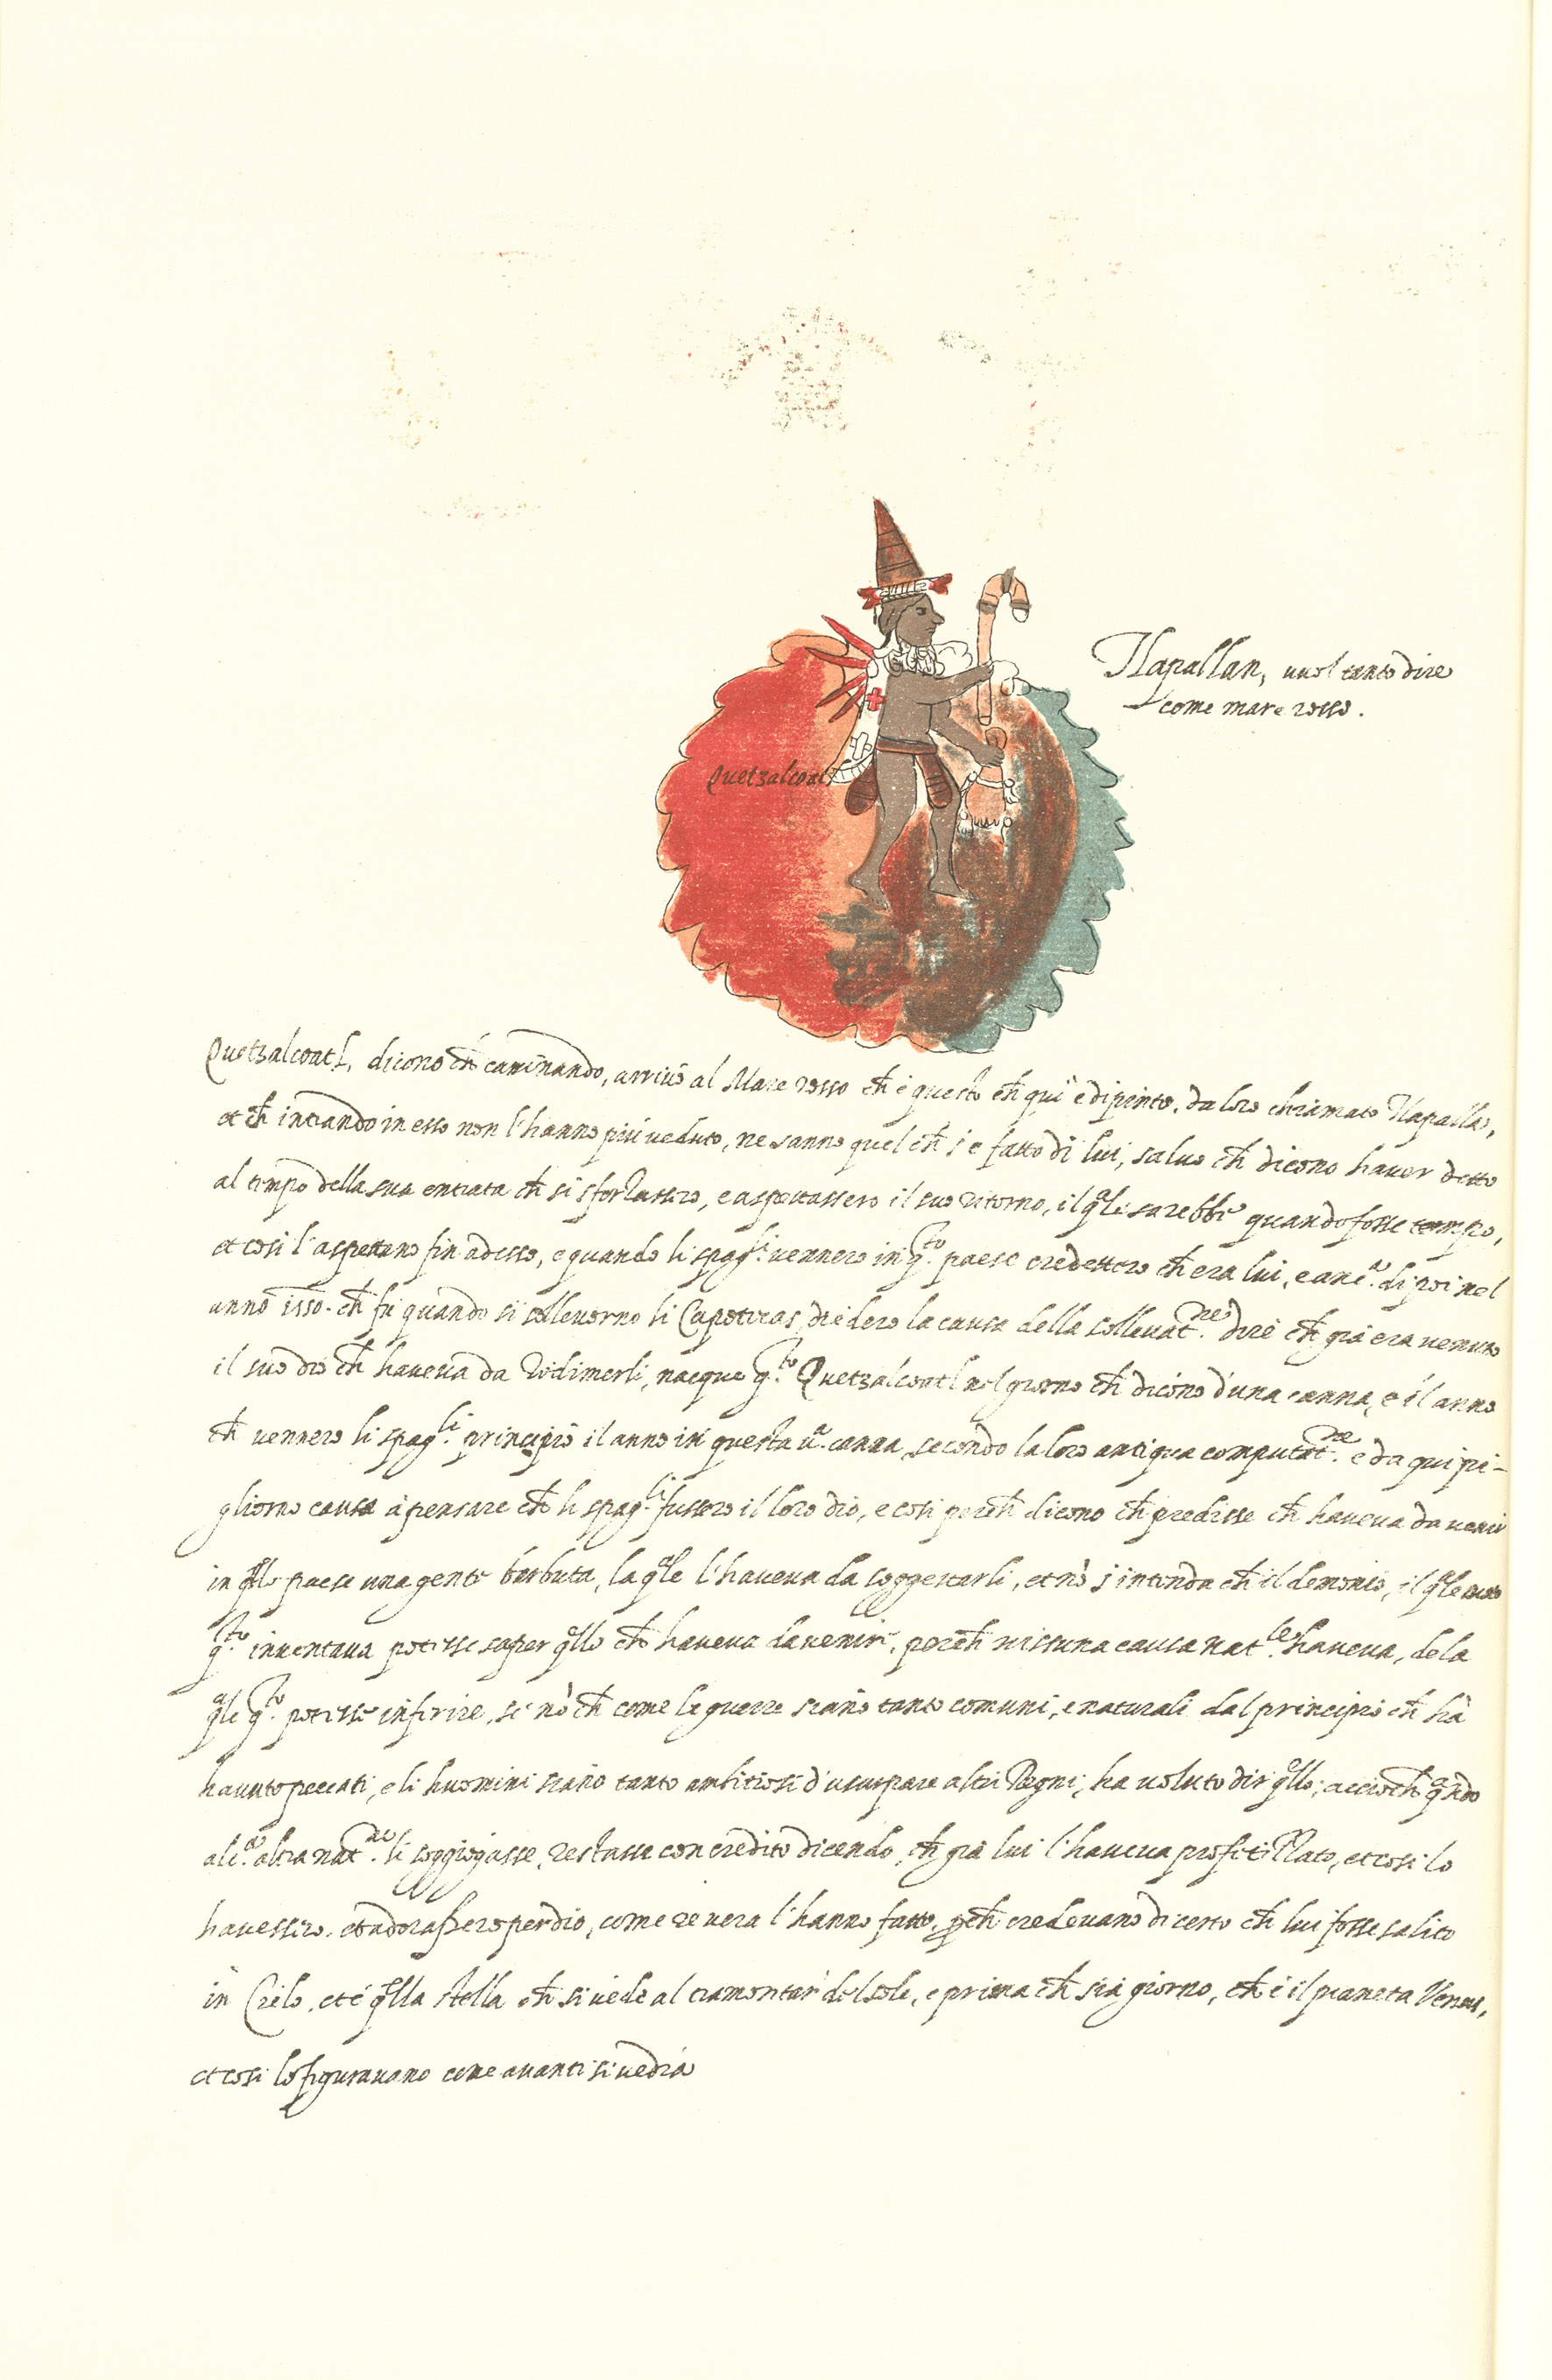 Tlapallan, vuol tanto dire
come mare rosso.
Quetzalcoatl
Quetzalcoatl, dicono ch̃ caminando, arrivò al Mare rosso ch̃ è questo ch̃ qui è dipinto, da loro chiamato Tlapalla,
et ch̃ intrando in esso non l'hanno più veduto, ne sanno quel ch̃ s'è fatto di lui, salvo ch̃ dicono haver detto
al tempo della sua entrata ch̃ si sforzassero, e aspettassero il suo ritorno, il q̃le sarebbe quando fosse tempo,
et così l'aspettano fin adesso, e quando li spag.li vennero in q.to paese credettero ch̃ era lui, e anc.a di poi nel
anno 1550. ch̃ fù quando si sollevorno li Capotecas, diedero la causa della sollevat.ne dire ch̃ già era venuto
il suo dio ch̃ haveva da redimerli, nacque q.to Quetzalcoatl nel giorno ch̃ dicono d'una canna, e il anno
ch̃ vennero li spag.li principiò il anno in questa u.a canna, secondo la loro antiqua computat.ne e da qui pi-
gliorno causa à pensare ch̃ li spag.li fussero il loro dio, e così perch̃ dicono ch̃ predisse ch̃ haveva da venir
in q̃llo paese una gente barbuta, la q̃le l'haveva da soggettarli, et nõ s'intenda ch̃ il demonio, il q̃le
q.to inventava potesse saper q̃llo ch̃ haveva da venire, perch̃ nissuna causa nat.le haveva, de la
q̃le q.to potesse inferire, se nõ ch̃ come le guerre siano tanto comuni, e naturali dal principio ch̃ hà
havuto peccati, e li huomini siano tanto ambitiosi d'usurpare altri Regni, ha voluto dir q̃llo, acciochẽ q̃ndo
alc.a altra nat.ne li soggiogasse, restasse con credito dicendo, ch̃ già lui l'haveva profetizzato, et così lo
havessero, et adorassero per dio, come re vera l'hanno fatto, p̃ch̃ credevano di certo ch̃ lui fosse salito
in Cielo, et è q̃lla stella ch̃ si vede al tramontar del sole, e prima ch̃ sia giorno, ch̃ è il pianeta Venus,
et così lo figuravano come avanti si vedrà